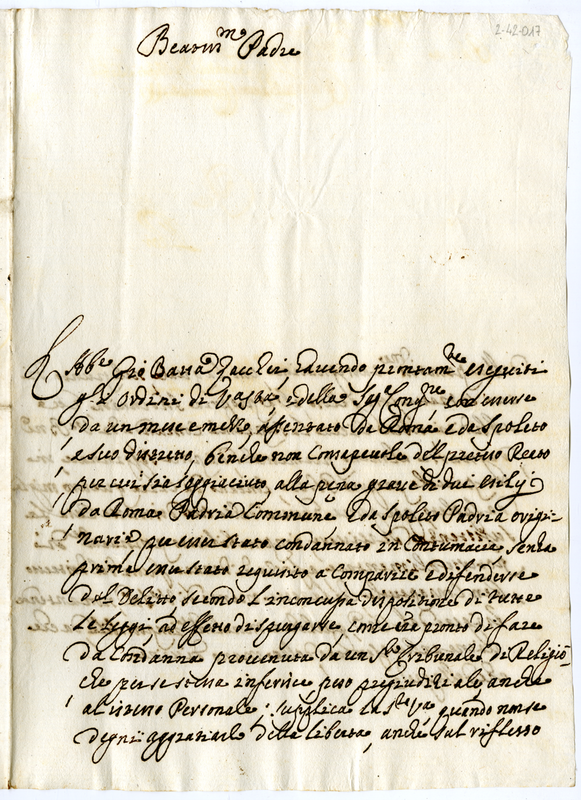 2-42-017
Beatiss.mo Padre
L'Abb.e Gio Batta Zacchei havendo prontam.te eseguiti
gli ordini di V.ra S.tà e della Cong.ne con essersi
da un mese e mezzo assentato da Roma e da Spoleto
e suo distretto, benche non Consapevole del preteso Reato
per cui sia soggiaciuto alla pena grave di due esilij
da Roma Padria Commune e da Spoleto Padria origi-
naria per esser stato condannato in Contumacia senza
prima esser stato requisito a Comparire e difendersi
dal Delitto secondo l'inconcussa dispositione di tutte
le leggi ad effetto di spurgarsi come era pronto di fare
da Condanna provenuta da un S.to Tribunale di Religio-
che per se stessa inferisce peso pregiuditiale anche
al Personale: supplica la S.tà V.ra quando non se
degni aggratiarlo della libertà, anche sul riflesso